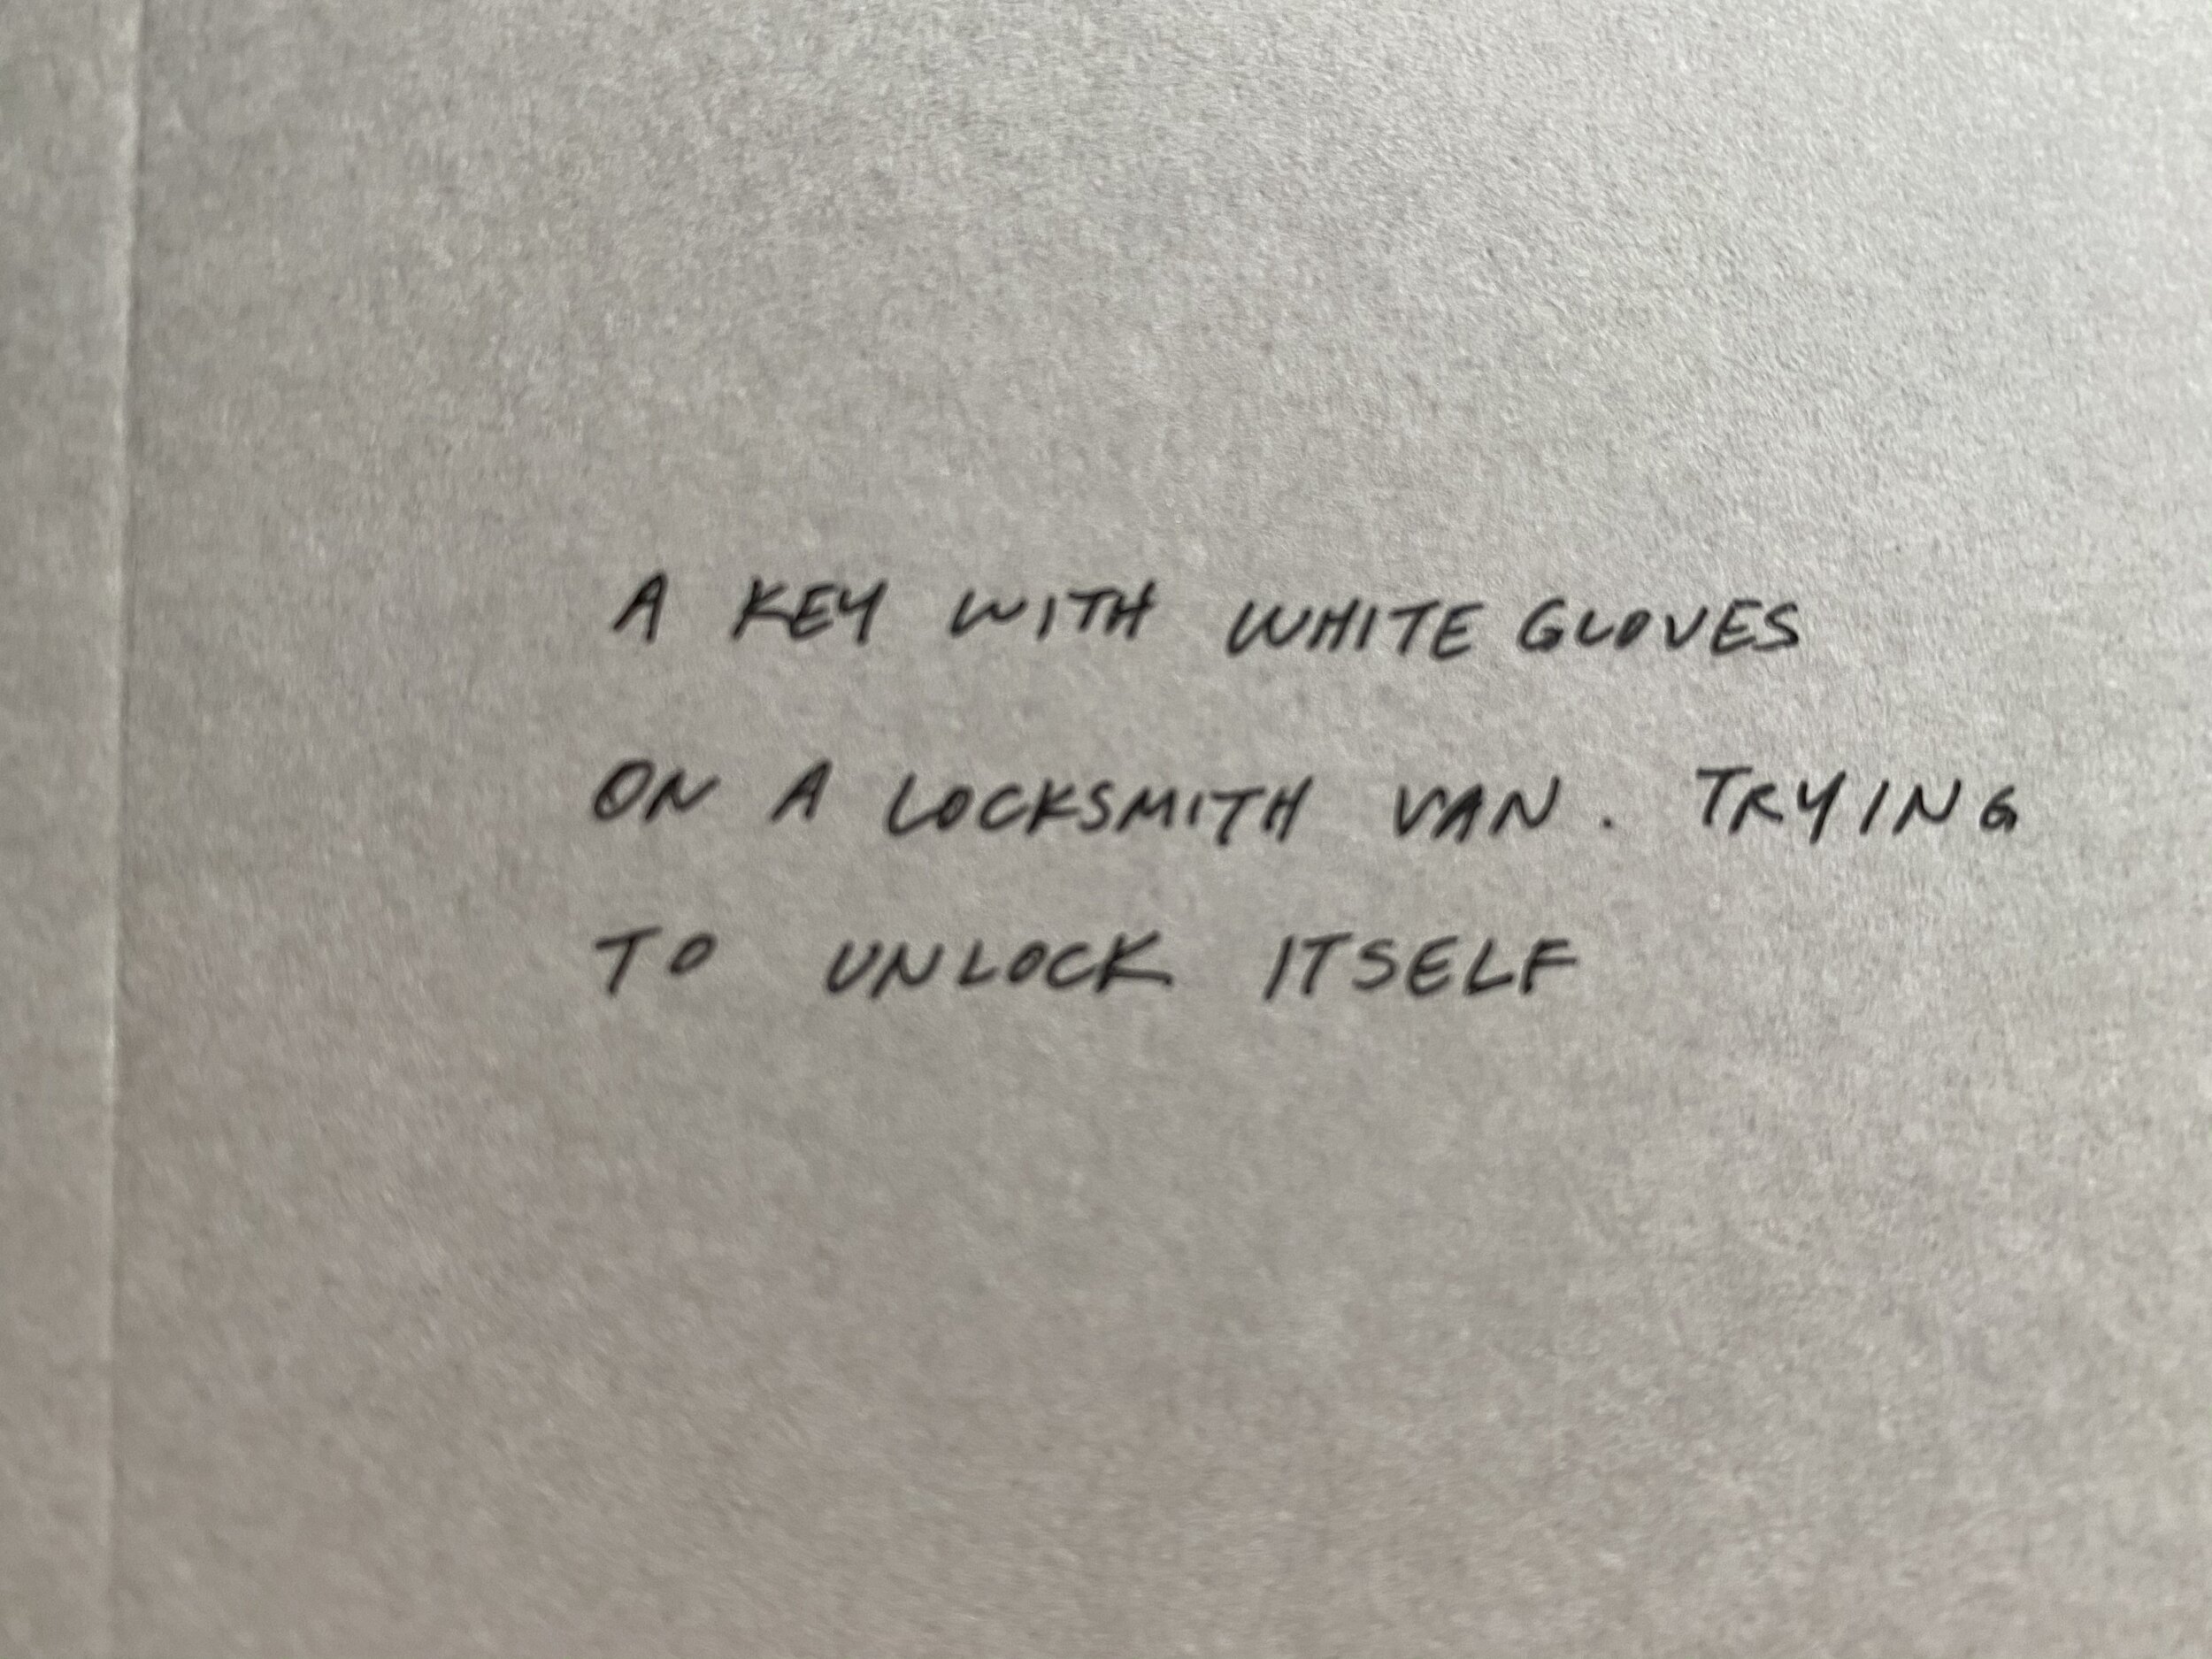 A KEY WITH WHITE GLOVES
ON A LOCKSMITH VAN. TRYING
TO UNLOCK ITSELF